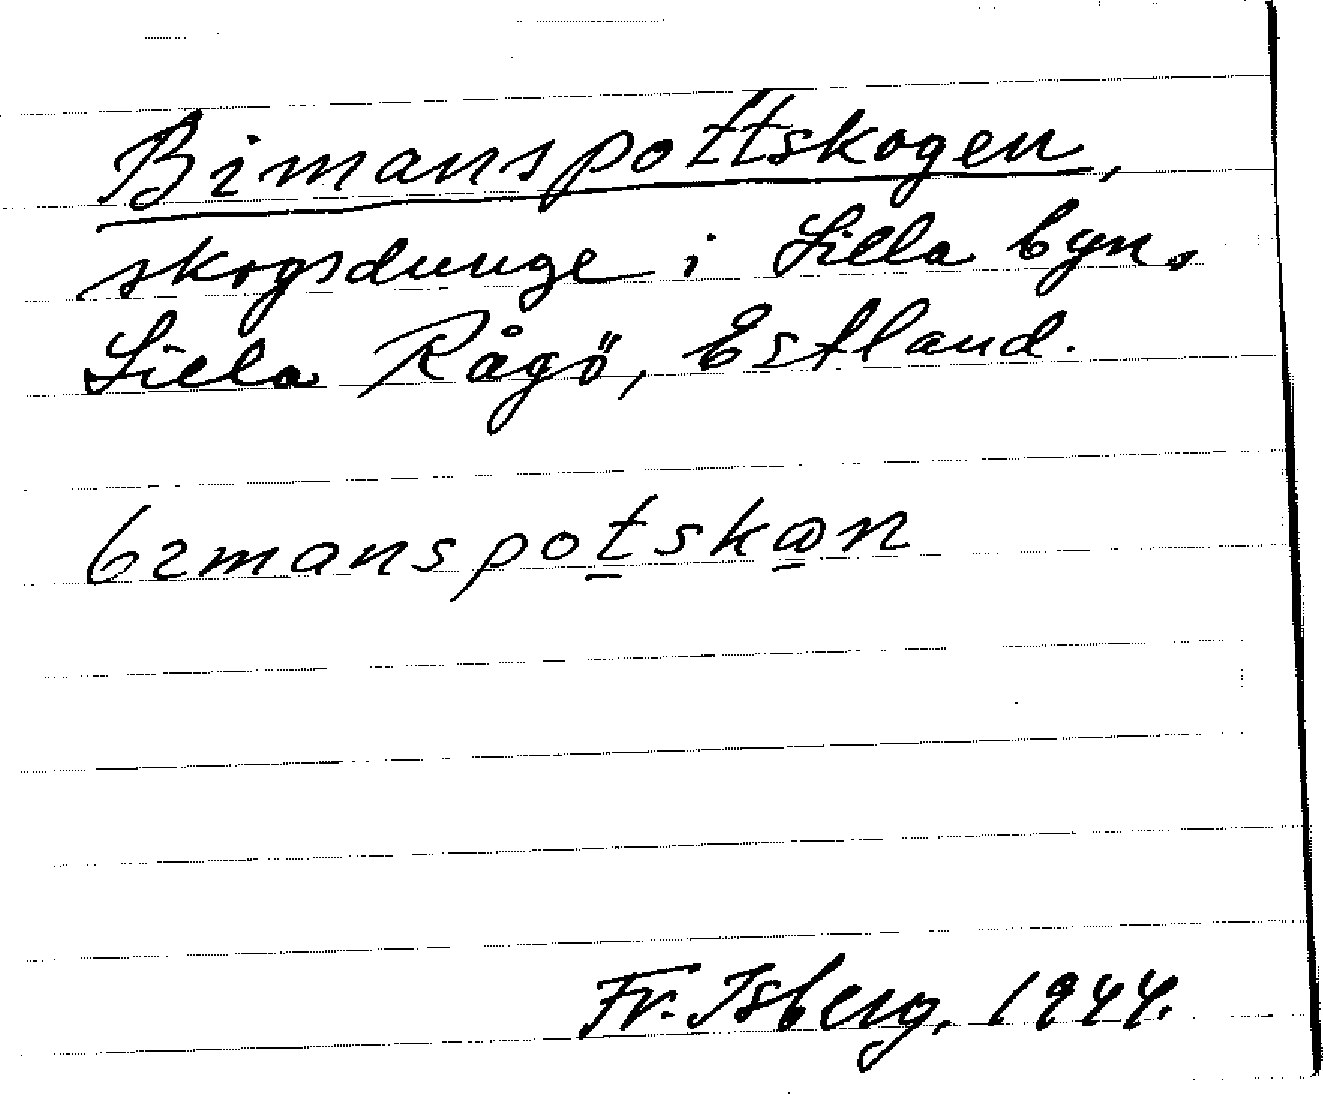 Bimanspottskogen,
skogsdunge i Lilla byn,
Lilla Rågö, Estland.
bımanspotskωn
Fr. Isberg, 1944.